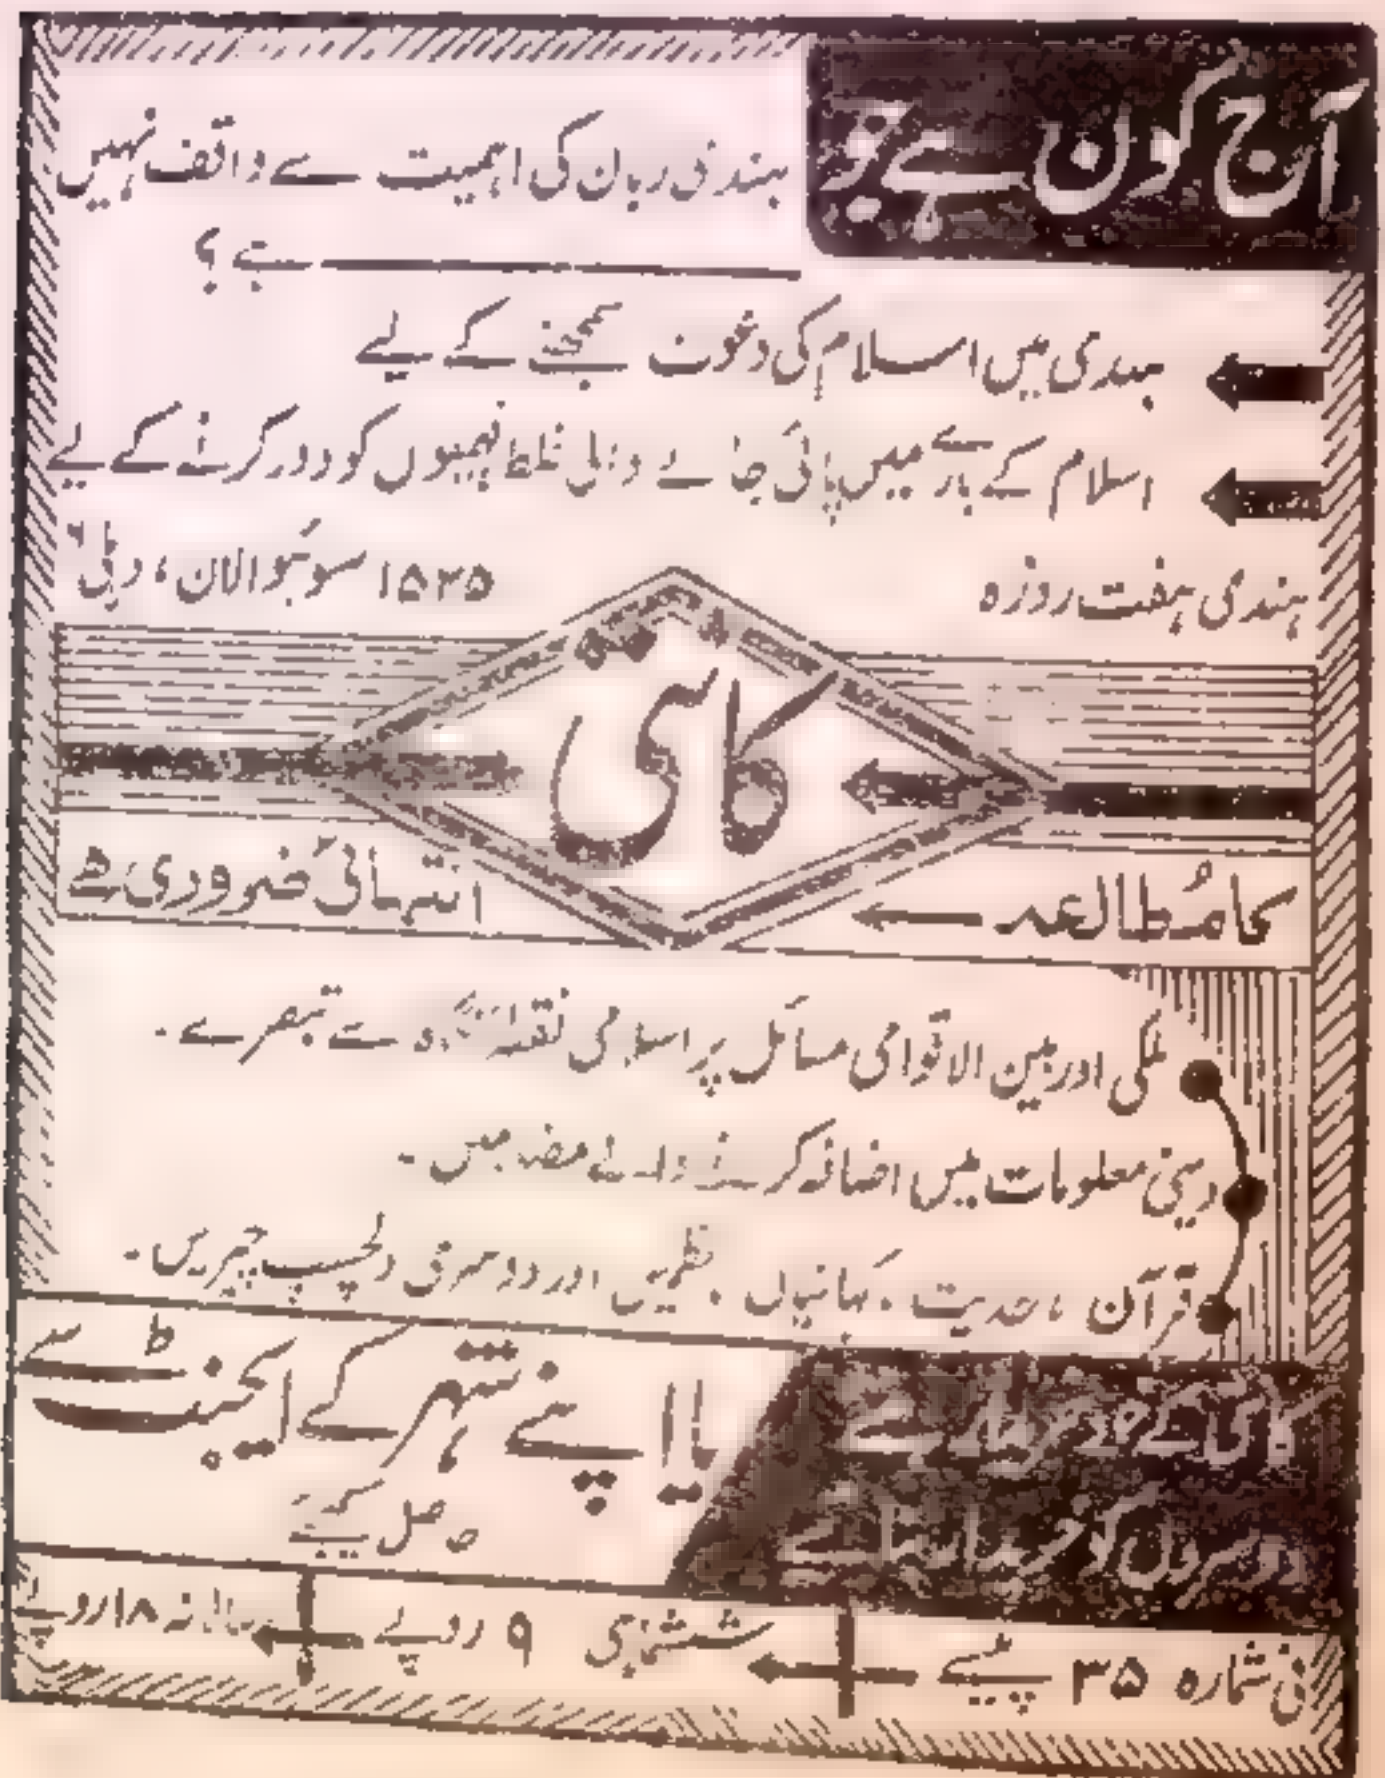 آج کون ہے جو ہندی زبان کی اہمیت سے واقف نہیں
ہے ؟
ہندی میں اسلام کی دعوت سمجھنے کے لیے
اسلام کے بارے میں پائی جانے والی غلط فہمیوں کو دور کرنے کے لیے
ہندی ہفت روزہ
۱۵۲۵ سوئیوالان، دہلی ۶
کانتی
کا مُطالعہ
انتہائی ضروری ہے
ملکی اور بین الاقوامی مسائل پر اسلامی نقطۂ نگاہ سے تبصرے۔
دینی معلومات میں اضافہ کرنے والے مضامین۔
قرآن، حدیث، کہانیاں، نظمیں اور دوسری دلچسپ چیزیں۔
کانتی کے خود خریدار بنیے
دوسروں کو خریدار بنائیے
یا اپنے شہر کے ایجنٹ سے
حاصل کیجئے
فی شمارہ ۳۵ پیسے
ششماہی ۹ روپے
سالانہ ۱۸ روپے